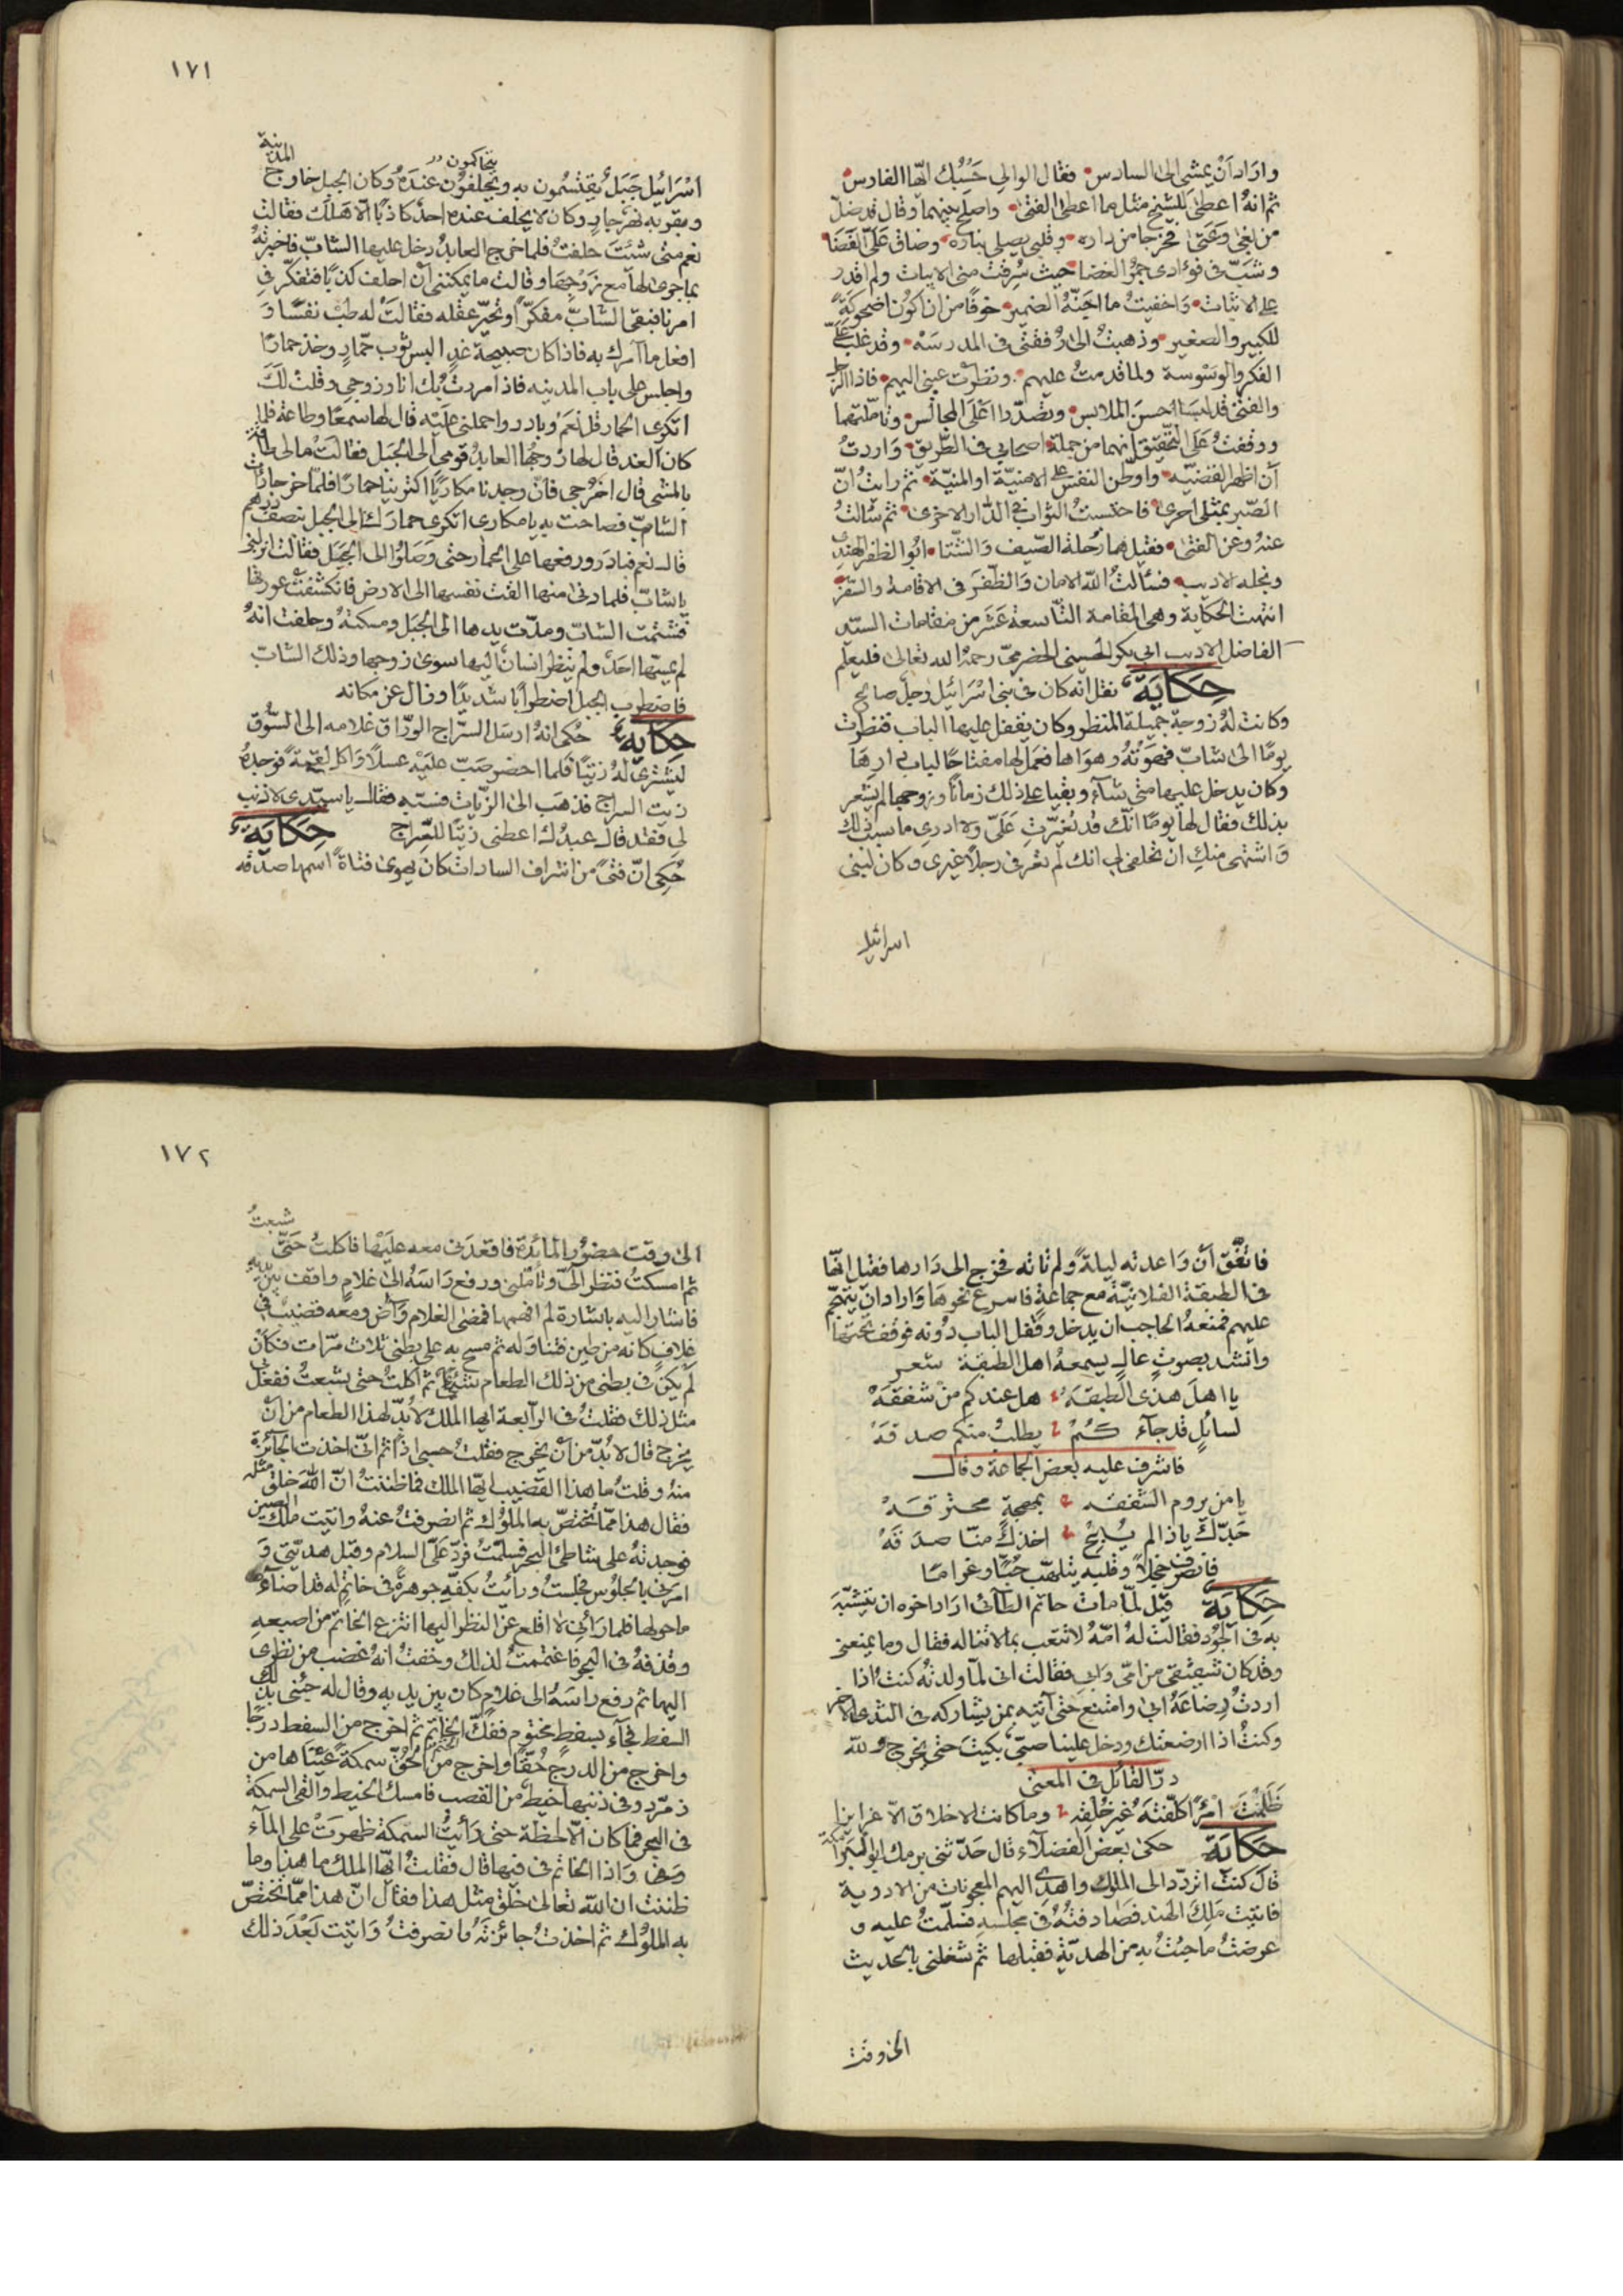 واراد أن يمشى الى السادس فقال الوالى حَسْبُك انّها القادس
ثم انهُ اعطى للشيخ مثل ما اعطى الفتى واصلح بينهما وقال قد ضلّ
من بغى وَعَتى فخرجا من داره وقلبى يصلى بناره وضاق عَلَىّ الفَضَا
وشبّ فى فؤادى جمرُ الغضا حيث سُرِقتْ منى الابيات ولم اقدر
على الاثبات وَاخفيتُ ما اجنّهُ الضمير خوفًا من ان اكُون اضحوكةً
للكبير والصغير وذهبتُ الى رُفقتى فى المدرسَهْ وقد غلب عَلَىّ
الفكر والوسْوسة ولما قدمتُ عليهم ونظرَتْ عينى اليهم فاذا الرجل
والفتى قد لبسَا احسَن الملابس وتصَدّرا اعْلَى المجالس وتأمّلتهما
ووقفتُ عَلَى التحقيق انهما من جملة اصحابى فى الطّريق وَاردتُ
أن اظهر القضيّه واوطّن النفس على الامنيّة او المنيّة ثم رايتُ انّ
الصّبر بمثلى احرى فاحتسبتُ الثواب فى الدّار الاخرى ثم سَالتُ
عنهُ وعن الفتى فقيل هما رُحلة الصّيف وَالشّتا ابُو الظفر الهندىُ
ونجله الاديب فسَألتُ اللّه الامان وَالظّفَرَ فى الاقامة والسّفَر
انتهت الحكاية وهى المقامة التّاسعة عَشَر من مقامات السيّد
الفاضل الاديب ابى بكر الحسينى الحضرمىّ رحمهُ الله تعالى فليعلم
حِكَايَةٌ نقل انه كان فى بنى اسْرَائيل رجلٌ صالح
وكانت لهُ زوجة جميلة المنظر وكان يقفل عليها الباب فنظرت
يومًا الى شابّ فهَوَتْهُ وهوَاها فعمل لها مفتاحًا لباب دارهَا
وكان يدخل عليها متى شآء وبقيا على ذلك زمانًا وزوجها لم يشعر
بذلك فقال لها يومًا انّك قد تغيّرتِ عَلَىّ ولا ادرى ما سبب ذلك
وَاشتهى منكِ ان تحلفى لى انك لم تعرفى رجلًا غيرى وكان لبنى
اسرائيل
١٧١
المدينة
يتحاكمون
اسْرَائيل جَبَلٌ يُقْسِمُون به ويحلفوْن عندَهُ وكان الجبل خارج
وبقوبه نهْر جارٍ وكان لا يحلف عنده احدٌ كاذبًا الّا هَلَك فقالت
نعم متى شئتَ حلفتُ فلما خرج العابدُ دخل عليها الشابّ فاخبرتهُ
بما جرى لها مع زَوْجها وقالت ما يمكننى أنْ احلف كذبًا فتفكّر فى
امرنا فبقى الشابّ مفكّرًا وتحيّر عقله فقالتْ له طبْ نفسًا وَ
افعل ما آمرك به فاذا كان صبيحة غدٍ البس ثوب حمّارٍ وخذ حمارًا
واجلس على باب المدينه فاذا مررتُ بك انا وزوجى وقلت لكَ
اتكرى الحمار قل نعَمْ وبادر واحملنى عليْه قال لها سمعًا وطاعة فلمّا
كان الغد قال لها زوجُها العابدُ قومى الى الجبَل فقالتْ مالى طاقة
بالمشى قال اخرُجى فانْ وجدنا مكاريًا اكترينا حمارًا فلمّا خرجا رأت
الشابّ فصاحت به يا مكارى اتكرى حمارك الى الجبل بنصف درهم
قال نعم فبادَر ورفعها على الحمار حتى وَصَلُوا الى الجَبَل فقالت انزلنى
يا شابّ فلما دنى منها القت نفسها الى الارض فانكشفتْ عورتُها
فشتمت الشابّ ومدّت يدها الى الجبَل ومسكتهُ وحلفت انهُ
لم يمسّها احدٌ ولم ينظر انسانٌ اليها سوى زوجها وذلك الشابّ
فاضطرب الجبل اضطرابًا شديدًا وزال عن مكانه
حِكَايَه حُكى انهُ ارسَل السّراج الورّاق غلامه الى السّوْق
ليشترىَ لهُ زيتًا فلما احضر صَبّ عليْه عسلًا وَاكل لقمةً فوجدهُ
زيت السراج فذهَب الى الزيّات فسبّه فقال يا سيّدى لا ذنب
لى فقد قال عبدُك اعطنى زيتًا للسّراج حِكَايَة
حُكِى انّ فتىً من اشراف السادات كان يهوى فتاةً اسمها صدقه
فاتفّق أنْ وَاعدته ليلةً ولم تاته فخرج الى دَارها فقيل انّها
فى الطبقة الفلانيّة مع جماعةٍ فاسرع نحوهَا وَاراد ان يتهجّم
عليهم فمنعهُ الحاجب ان يدخل وقفل الباب دُونه فوقف تحتها
وانشد بصوتٍ عالٍ يسمعهُ اهل الطبقة شعر
يا اهلَ هذى الطبقَهْ هل عندكم منْ شفقَهْ
لسائلٍ قد جآءَ كُمْ يطلبُ منكم صدقَهْ
فاشرف عليه بعض الجماعة وقال
يا من يروم الشفقه بمهجةٍ محترقَهْ
جَدّك يا ذا لم يُبِحْ اخذك منّا صدقَهْ
فانصرَف خجلًا وقلبه يتلهّب حُبًّا وغرامًا
حِكَايَة قيل لمّا مات حاتم الطآئى ارَاد اخوه ان يتشبّهَ
به فى الجُود فقالتْ لهُ امّهُ لا تتعب بما لا تناله فقال وما يمنعنى
وقد كان شقيقى من امّى وَابى فقالت انى لمّا ولدتهُ كنتُ اذا
اردتُ رضاعَهُ ابى وامتنع حتى آتيَه بمن يشاركه فى الثدى الاخر
وكنتُ اذا ارضعتك ودخل علينا صبىّ بكيتَ حتى يخرج وللّه
درّ القائل فى المعنى
ظلمْتَ امْرًأ كلّفتَهُ غيرَ خُلقهِ وما كانت الاخلاق الّا غرايزا
حِكَايَة حكى بعض الفضلآء قال حَدّثنى برمك
قال كنتُ اتردّد الى الملوك واهدى اليهم المعجونات من الادوية
فاتيت مَلِكَ الهند فصَادفتُهُ فى مجلسهِ فسَلّمتُ عليه و
عرضتُ ما جئتُ به من الهديّةِ فقبلها ثم شغلنى بالحديث
الى وقت
١٧٢
شبعتُ
الى وقت حضوْر المائدة فاقعَدَنى معه عليْها فاكلتُ حَتّى
ثم امسكتُ فنظر الىّ وتأمّلنى ورفع رَاسَهُ الى غلامٍ واقف بين يديه
فاشار اليه باشارة لم افهمها فمضى الغلام وَحضر ومعه قضيب فى
غلافٍ كانه من طين فتناوَله ثم مسح به على بطنى ثلاث مرّات فكأن
لم يكنْ فى بطنى من ذلك الطعام شئٌ ثم أكلتُ حتى شبعتُ ففعل بى
مثل ذلك فقلتُ فى الرآبعة ايها الملك لا بُدّ لهذا الطعام من أنْ
يخرج قال لا بُدّ من أن يخرج فقلتُ حسبى اذًا ثم انّى اخذت الجآئزة
منهُ وقلتُ ما هذا القضيب ايّها الملك فما ظننتُ انّ اللّٰهَ خلق مثله
فقال هذا ممّا تختصّ به الملُوْك ثم انصرفتُ عنهُ واتيت ملك الصين
فوجدتهُ على شاطئ البحر فسلّمتُ فردّ عَلَىّ السلام وقبل هديّتى وَ
امرَنى بالجلوُس فجلستُ ورأيتُ بكفّه جوهرةً فى خاتمٍ له قد اضآء
ما حولها فلما رَآنى لا اقلع عن النظر اليها انتزع الخاتم من اصبعه
وقذفهُ فى البحر فاغتممتُ لذلك وخفتُ انهُ غضب من نظرى
اليها ثم رفع راسَهُ الى غلامٍ كان بين يديه وقال له جئنى بذلك
السفط فجآء بسفطٍ مختوم ففكّ الختم ثم اخرج من السفط درجًا
واخرج من الدرج حُقًّا واخرج من الحُقّ سمكةً عَيْنَاها من
زمرّد وفى ذنبها خيط من القصب فامسك الخيط والقى السمكة
فى البحر فما كان الّا لحظة حتى رَأيتُ السمكة ظهرَتْ على المآء
وَاذا الخاتم فى فيها قال فقلتُ ايّها الملك ما هذا وما
ظننت ان اللّٰه تعالى خلق مثل هذا فقال انّ هذا ممّا تختصّ
به الملوُك ثم اخذتُ جائزتَهُ وانصرفتُ وَاتيت بَعْدَ ذلك